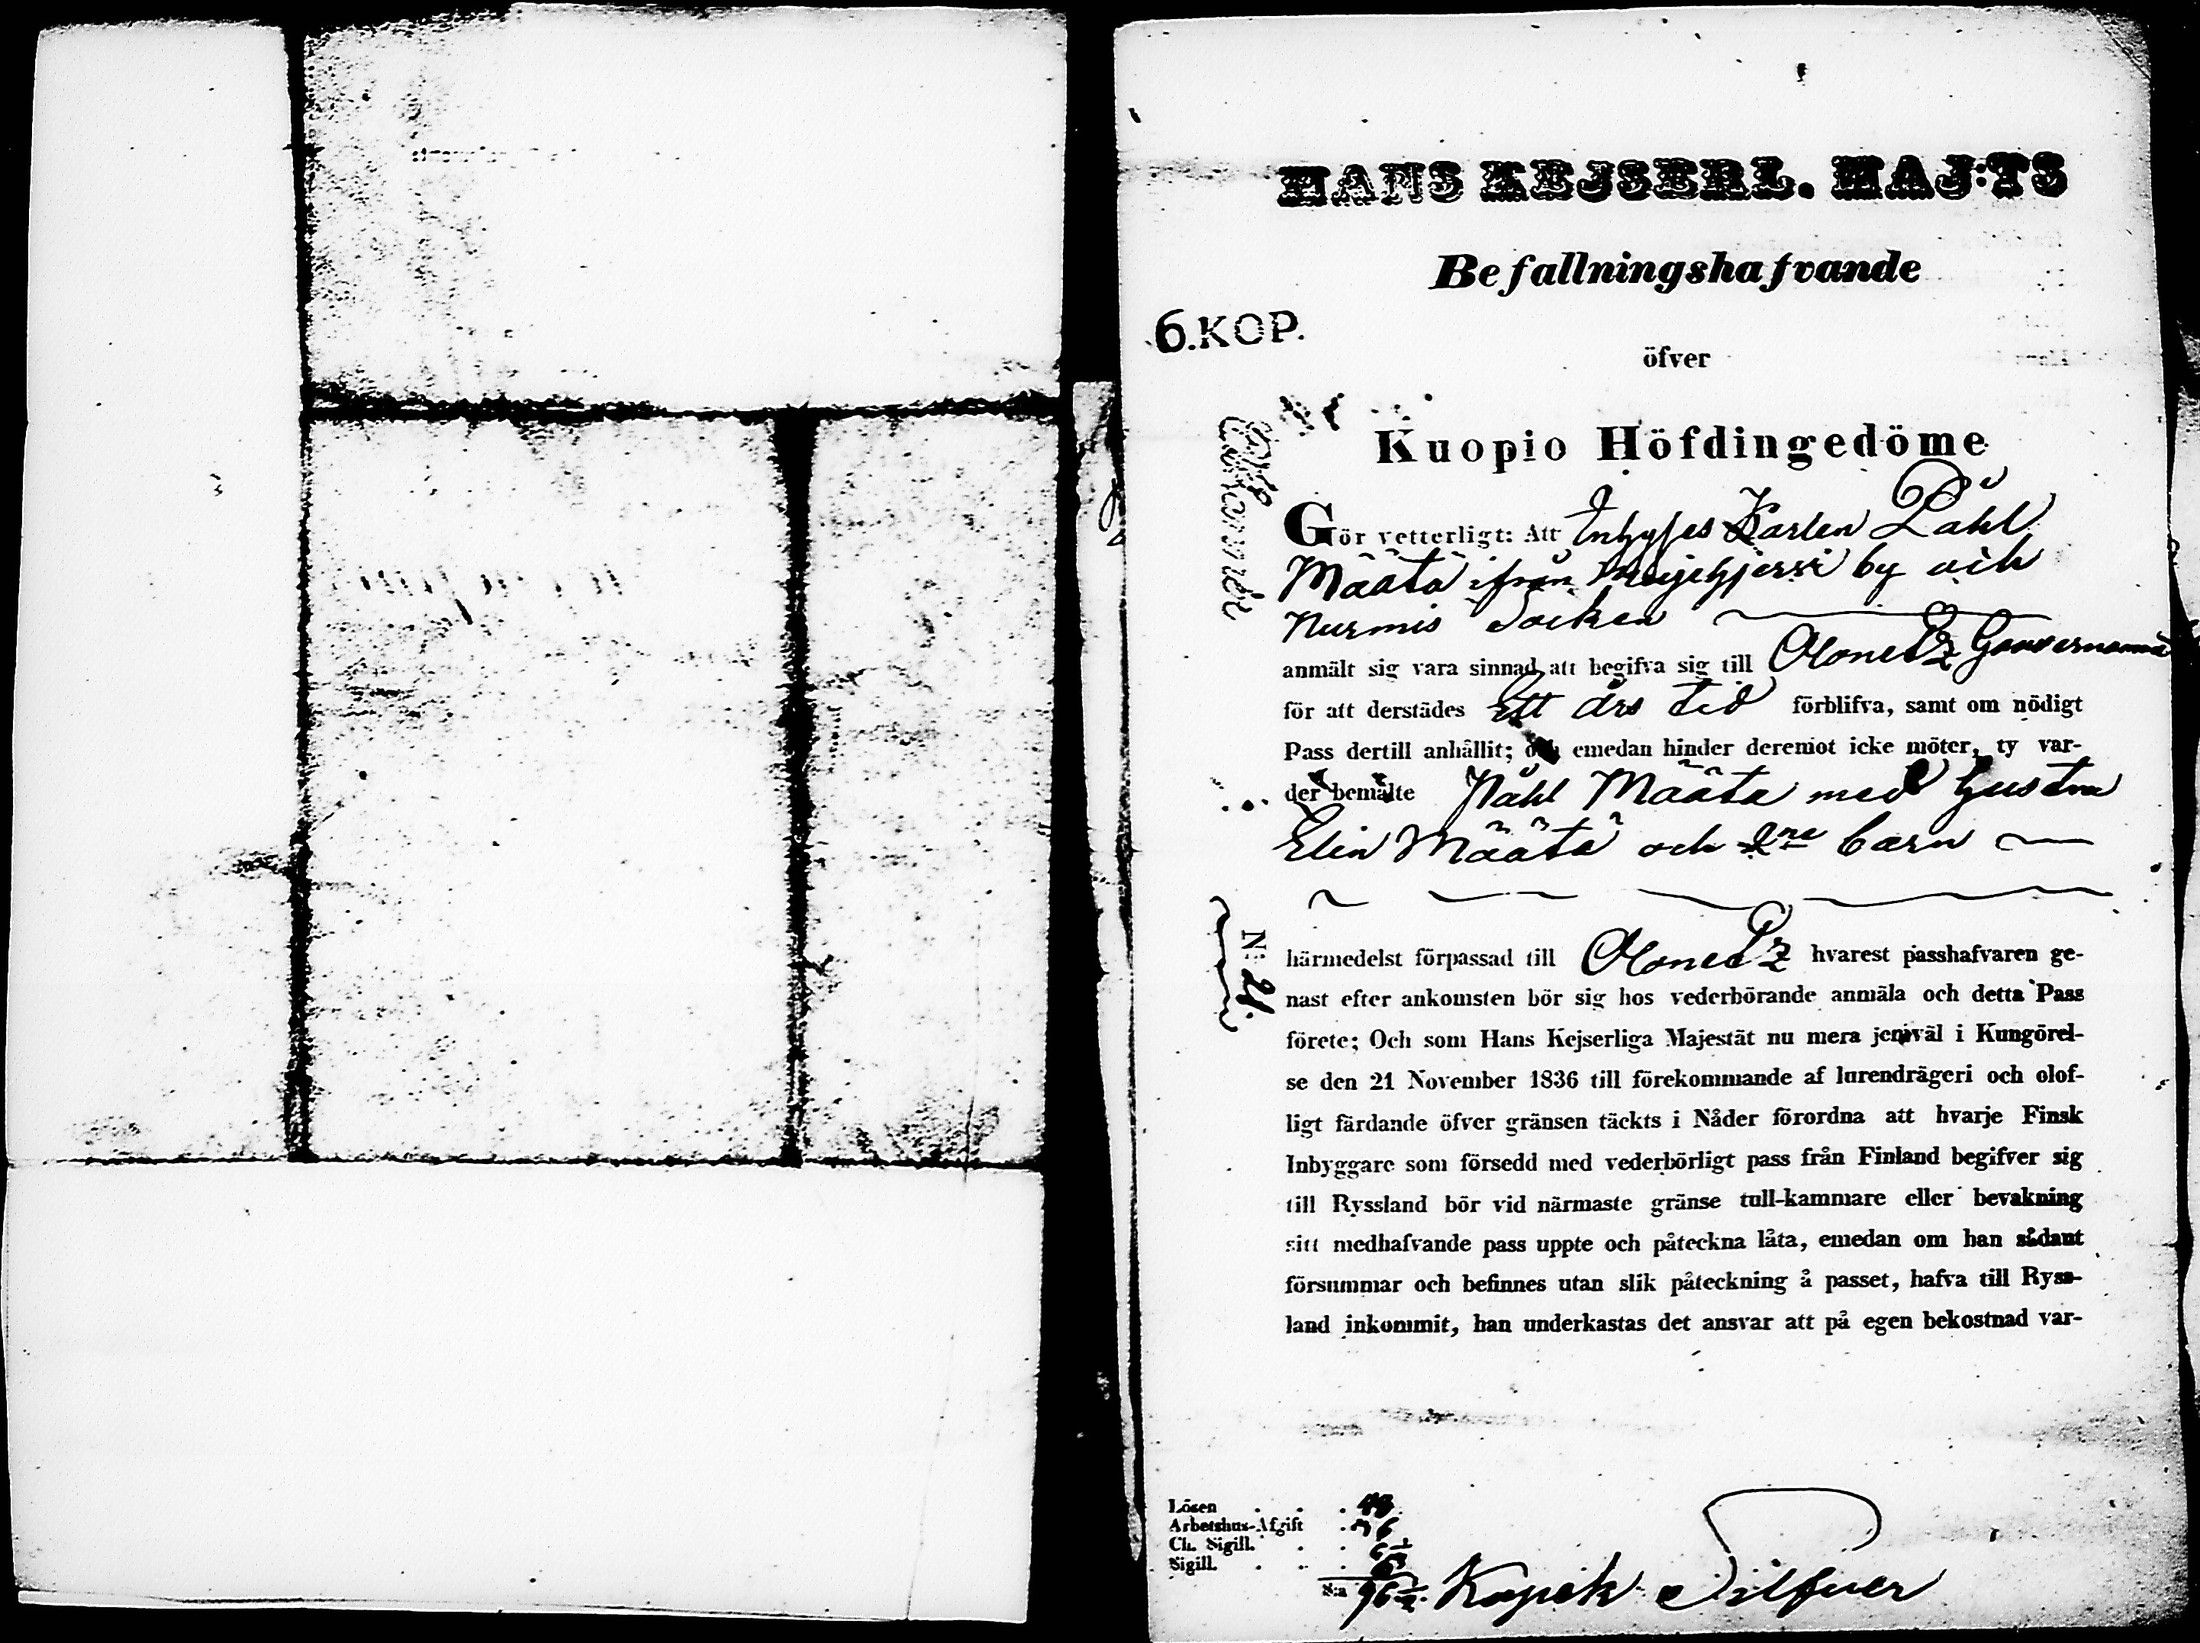 HANS KEJSERL. MAJ:TS
Befallningshafvande
6.KOP.
öfver
Kuopio Höfdingedöme
Gör vetterligt: Att Inhyses Karlen Påhl
Määtä ifrån by och
Nurmis Socken
anmält sig vara sinnad att begifva sig till Olonetz Gouvernement
för att derstädes Ett års tid förblifva, samt om nödigt
Pass dertill anhållit; och emedan hinder deremot icke möter, ty var-
der bemälte Påhl Määtä med hustru
Elin Määtä och 2ne barn
härmedelst förpassad till Olonetz hvarest passhafvaren ge-
nast efter ankomsten bör sig hos vederbörande anmäla och detta Pass
förete; Och som Hans Kejserliga Majestät nu mera jemväl i Kungörel-
se den 21 November 1836 till förekommande af lurendrägeri och olof-
ligt färdande öfver gränsen täckts i Nåder förordna att hvarje Finsk
Inbyggare som försedd med vederbörligt pass från Finland begifver sig
till Ryssland bör vid närmaste gränse tull-kammare eller bevakning
sitt medhafvande pass uppte och påteckna låta, emedan om han sådant
försummar och befinnes utan slik påteckning å passet, hafva till Ryss-
land inkommit, han underkastas det ansvar att på egen bekostnad var-
N:
Lösen 48
Arbetshus-Afgift 36
Ch. Sigill. 6½
Sigill. 6
S:a 96½ Kopek Silfver